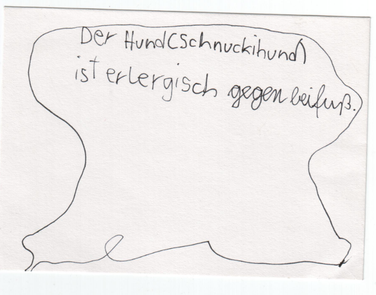 Der Hund(Schnuckihund)
ist erlergisch gegen beifuß.